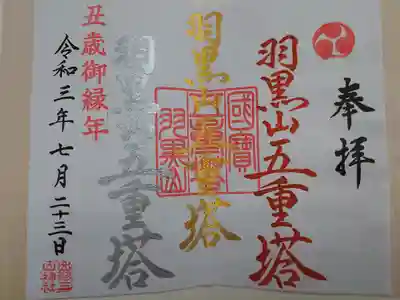 奉拝
羽黒山五重塔
羽黒山五重塔
羽黒山五重塔
國寶
羽黒山
丑歳御縁年
令和三年七月二十三日